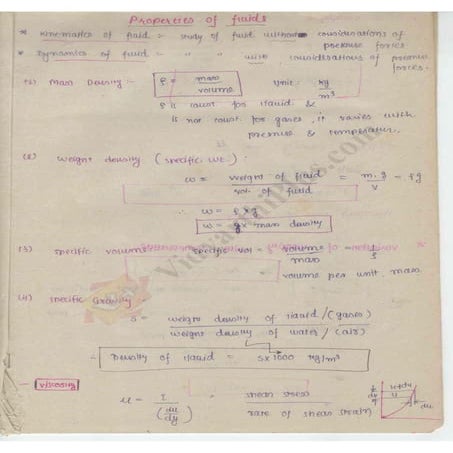 Properties of fluids
* Kinematics of fluid :- study of fluid without considerations of
pressure forces
* Dynamics of fluid :- " " with considerations of pressure
forces.
(1) Mass Density :- ρ = mass / volume Unit : kg / m³
ρ is const for liquid &
is not const. for gases, it varies with
pressure & temperature.
(2) Weight density (specific wt.) :
w = weight of fluid / vol. of fluid = m.g / v = ρg
∴ w = ρ×g
w = g× mass density
(3) specific volume specific vol = volume / mass = 1/ρ
volume per unit mass
(4) Specific Gravity
S = weight density of liquid/(gases) / weight density of water/(air)
Density of liquid = S×1000 kg/m³
- Viscosity μ = τ / (du/dy) shear stress / rate of shear strain